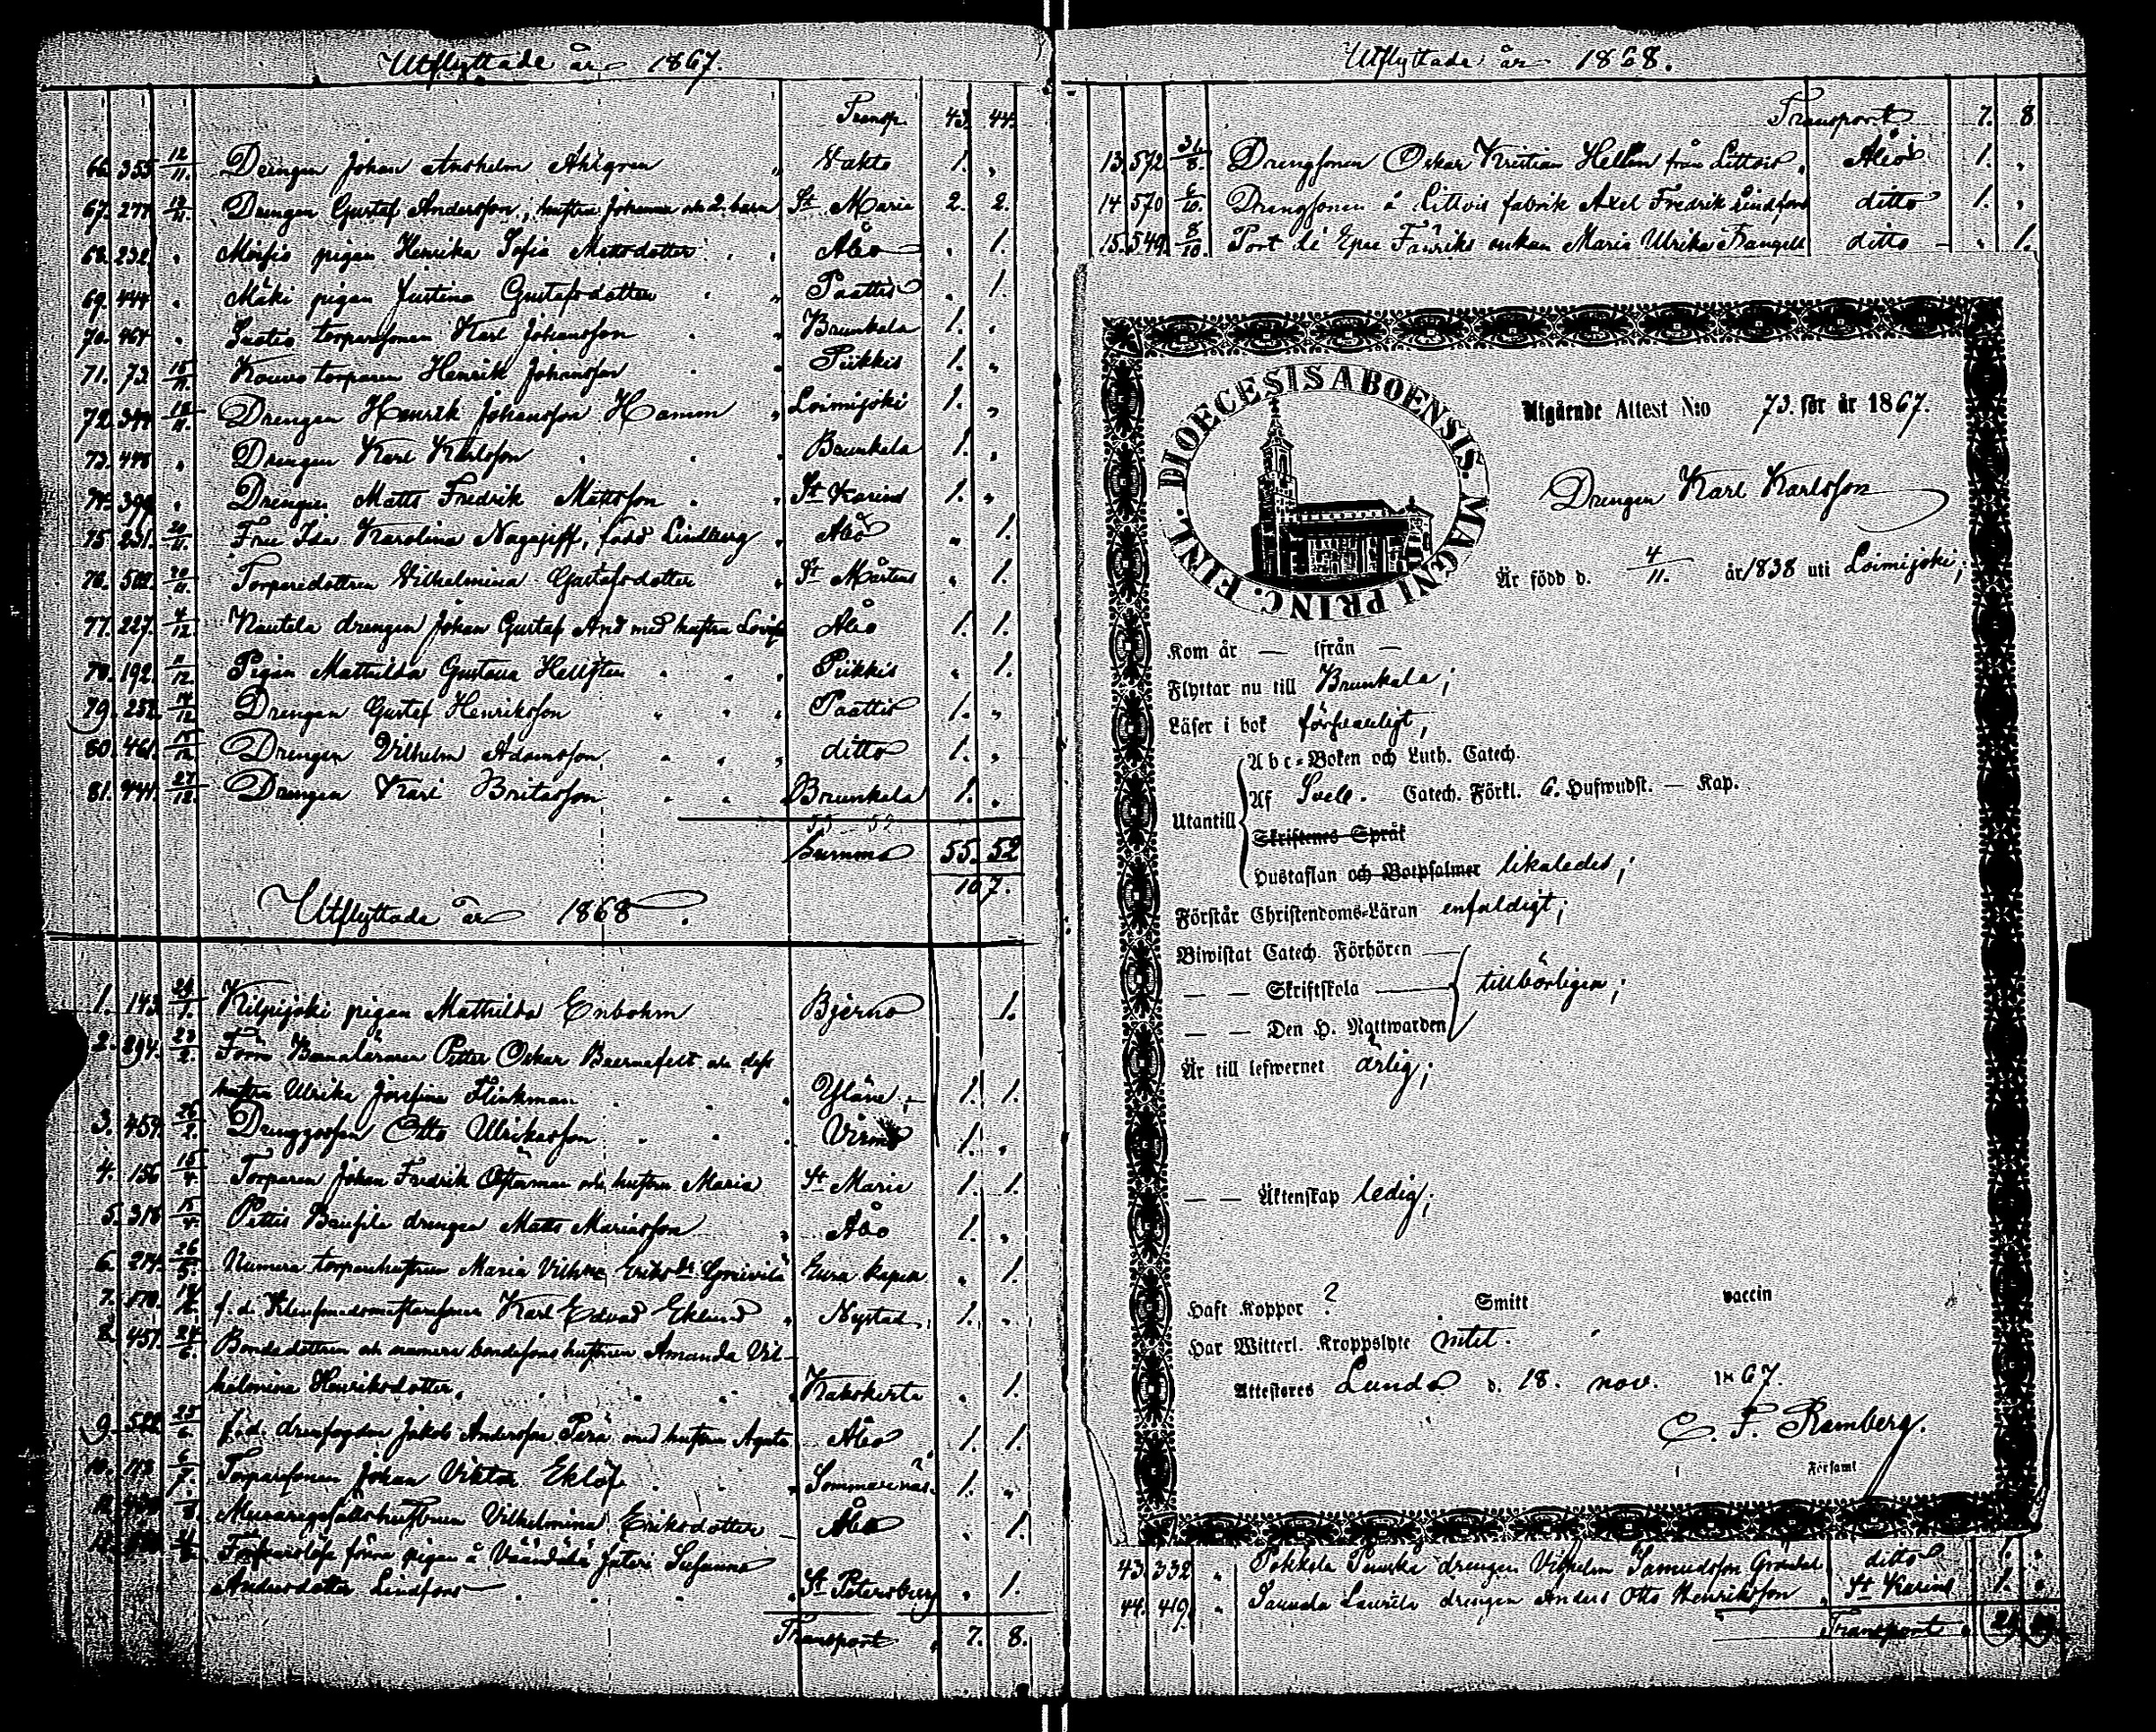 Utflyttade år 1867.
Transp. 43. 44.
66. 355 12/11. Drengen Johan Anshelm Ahlgren " Vahto 1. "
67. 277. 13/11. Drengen Gustaf Andersson, hustru Johanna och 2. barn St Marie 2. 2.
68. 232. " Moisio pigan Henrika Sofia Mattsdotter " Åbo " 1.
69. 444 " Mäki pigan Justina Gustafsdotter " Paattis " 1.
70. 467 " torparesonen Karl Johansson " Brunkala 1. "
71. 73 15/11. Kouvo torparen Henrik Johansson " Piikkis 1. "
72. 344 18/11. Drengen Henrik Johansson Hamm " Loimijoki 1. "
73. 448 " Drengen Karl Karlsson " Brunkala 1. "
74. 394 " Drengen Matts Fredrik Mattsson " St Karins 1. "
75. 231. 20/11. Fru Ida Karolina Nagajeff, född Lindberg " Åbo " 1.
76. 502. 20/11. Torparedottren Vilhelmina Gustafsdotter " St Mårtens " 1.
77. 227. 4/12. Nautela drengen Johan Gustaf And med hustru Lovisa Åbo 1. 1.
78. 192. 11/12. Pigan Mathilda Gustava Hellsten " Piikkis " 1.
79. 252. 14/12. Drengen Gustaf Henriksson " Paattis 1. "
80. 461. 15/12. Drengen Vilhelm Adamsson " ditto 1. "
81. 441. 27/12. Drengen Karl Britasson " Brunkala 1. "
Summa 55. 52
107.
Utflyttade år 1868.
1. 143. 24/1. Kilpijoki pigan Mathilda Enbohm Bjerno 1.
2. 294. 23/2. Förre Petter Oskar och dess
hustru Ulrika Josefina Flinkman " Yläne 1. 1.
3. 459. 26/2. Drenggossen Otto Ulrikasson " Virmo 1. "
4. 156 15/4. Torparen Johan Fredrik Österman och hustrun Maria St Marie 1. 1.
5. 318 15/4. Pettis drengen Matts Mariasson " Åbo 1. "
6. 214. 26/5. Numera torparehustrun Maria Vilhna Eriksdr Eura kapell " 1.
7. 170. f. d. Karl Edvard Eklund " Nystad 1. "
8. 457. 24/6. Bondedottren och numera bondesonshustrun Amanda Vil-
helmina Henriksdotter " Kakskerta " 1.
9. 522 25/6. f. d. Jakob Andersson Perä med hustrun Agata Åbo 1. 1.
10. 113 6/7. Torparesonen Johan Viktor Eklöf " Sommarnäs 1. "
11. Vilhelmina Eriksdotter Åbo " 1.
12. förra pigan å Väändälä Susanna
Andersdotter Lindfors " St Petersburg " 1.
Transport " 7. 8.
Utflyttade år 1868.
Transport 7. 8.
13. 572 31/8. Drengsonen Oskar Kristian Hellen från Littois " Åbo 1. "
14 570 6/10. Drengsonen å Littois fabrik Axel Fredrik Lindfors ditto 1. "
15. 549. 8/10. enkan Maria Ulrika Frangell ditto " 1.
DIOECESIS ABOENSIS. MAGNI PRINC. FINL.
Utgående Attest N:o 73. för år 1867.
Drengen Karl Karlsson
Är född d. 4/11. år 1838 uti Loimijoki;
Kom år — ifrån —
Flyttar nu till Brunkala;
Läser i bok försvarligt,
Utantill
Abc-Boken och Luth. Catech.
Af Sveb. Catech. Förkl. 6. Hufwudst. — Kap.
Skriftenes Språk
Hustaflan och Botpsalmer likaledes;
Förstår Christendoms-Läran enfaldigt;
Biwistat Catech. Förhören
— — Skriftskola tillbörligen;
— — Den H. Nattwarden
Är till lefwernet ärlig;
— — Äktenskap ledig;
Haft Koppor ? Smitt vaccin
Har Witterl. Kroppslyte intet.
Attesteres Lundo d. 18. nov. 1867.
C. F. Ramberg.
Församl
43. 332 " Pokkola drengen Vilhelm Samuelsson Gröndal ditto 1. "
44. 419. " Saukola Laurila drengen Anders Otto Henriksson " St Karins 1. "
Transport